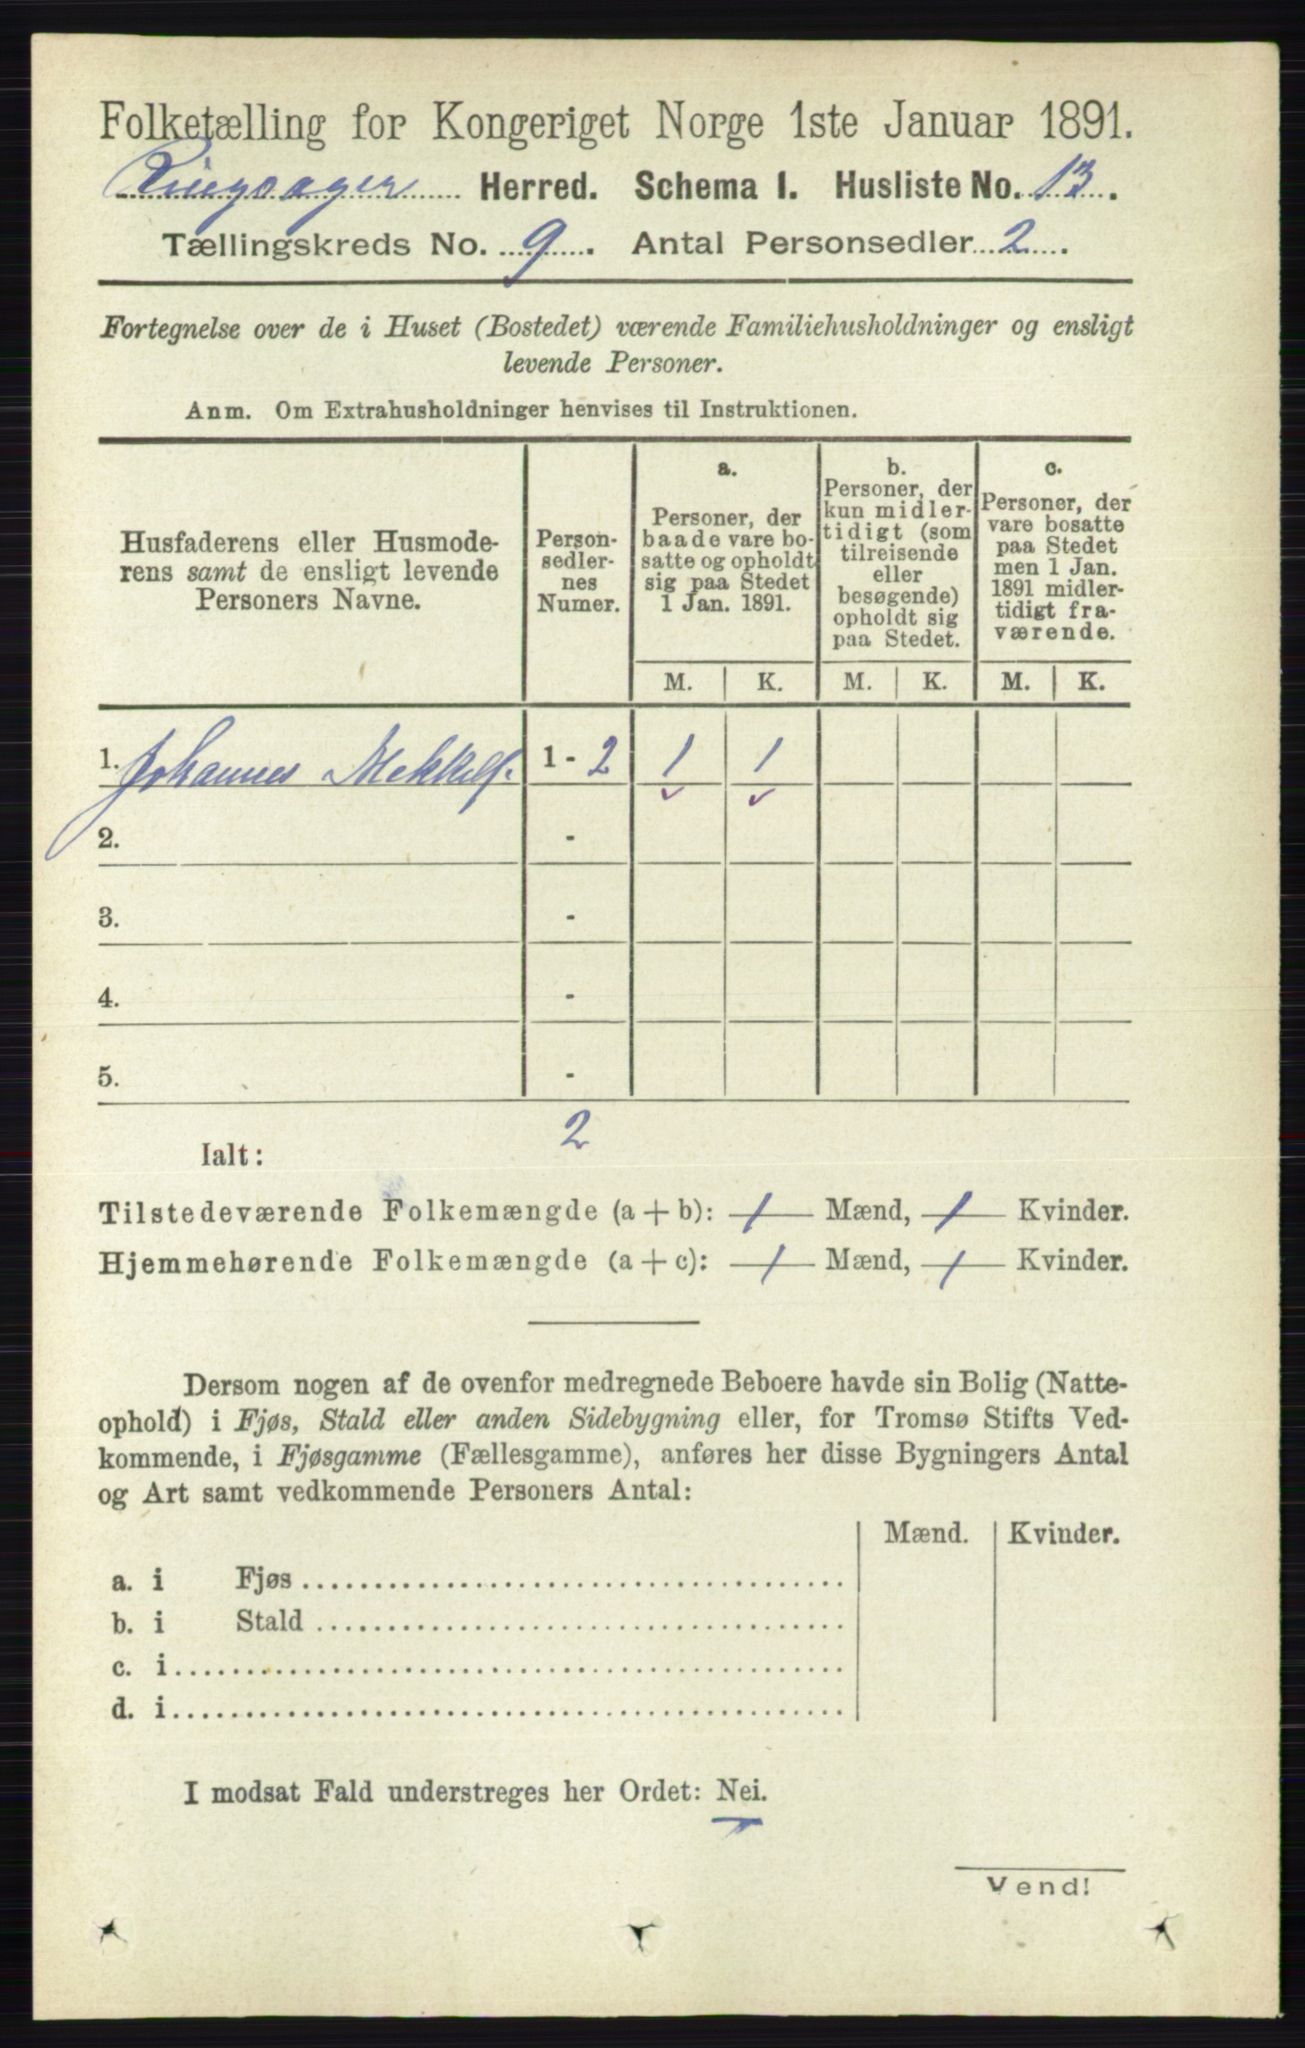 Folketælling for Kongeriget Norge 1ste Januar 1891.
Ringsager Herred. Schema 1. Husliste No. 13.
Tællingskreds No. 9. Antal Personsedler 2.
Fortegnelse over de i Huset (Bostedet) værende Familiehusholdninger og ensligt
levende Personer.
Anm. Om Extrahusholdninger henvises til Instruktionen.
Husfaderens eller Husmode-
rens samt de ensligt levende
Personers Navne.
Person-
sedler-
nes
Numer.
a.
Personer, der
baade vare bo-
satte og opholdt
sig paa Stedet
1 Jan. 1891.
b.
Personer, der
kun midler-
tidigt (som
tilreisende
eller
besøgende)
opholdt sig
paa Stedet.
c.
Personer, der
vare bosatte
paa Stedet
men 1 Jan.
1891 midler-
tidigt fra-
værende.
M. K. M. K. M. K.
1. Johannes Mekkels. 1 - 2 1 1
2. -
3. -
4. -
5. -
2
Ialt:
Tilstedeværende Folkemængde (a + b): 1 Mænd, 1 Kvinder.
Hjemmehørende Folkemængde (a + c): 1 Mænd, 1 Kvinder.
Dersom nogen af de ovenfor medregnede Beboere havde sin Bolig (Natte-
ophold) i Fjøs, Stald eller anden Sidebygning eller, for Tromsø Stifts Ved-
kommende, i Fjøsgamme (Fællesgamme), anføres her disse Bygningers Antal
og Art samt vedkommende Personers Antal:
Mænd. Kvinder.
a. i Fjøs
b. i Stald
c. i
d. i
I modsat Fald understreges her Ordet: Nei.
Vend!